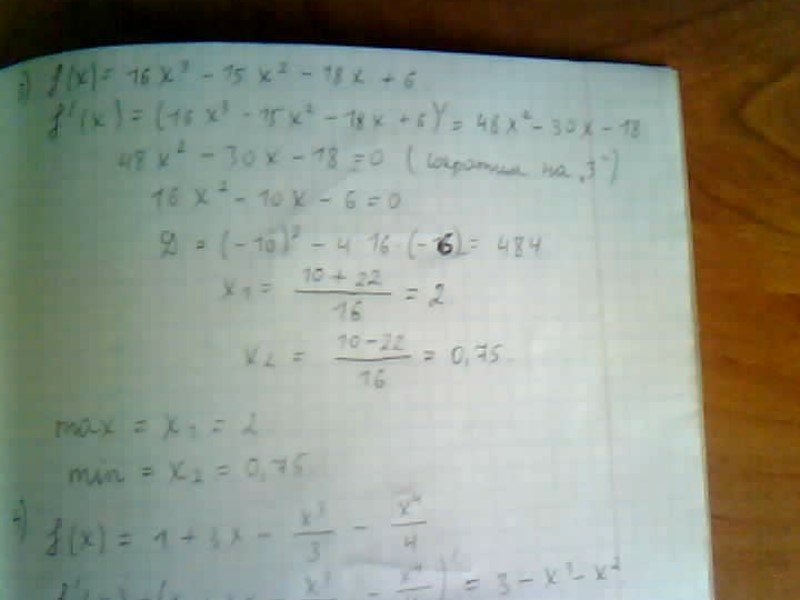 3) f(x) = 16x³ - 15x² - 18x + 6
f'(x) = (16x³ - 15x² - 18x + 6)' = 48x² - 30x - 18
48x² - 30x - 18 = 0 (сократим на „3")
16x² - 10x - 6 = 0
D = (-10)² - 4 16·(-6) = 484
x₁ = (10 + 22)/16 = 2
x₂ = (10 - 22)/16 = 0,75
max = x₁ = 2
min = x₂ = 0,75
4) f(x) = 1 + 3x - x³/3 - x⁴/4
= 3 - x³ - x²